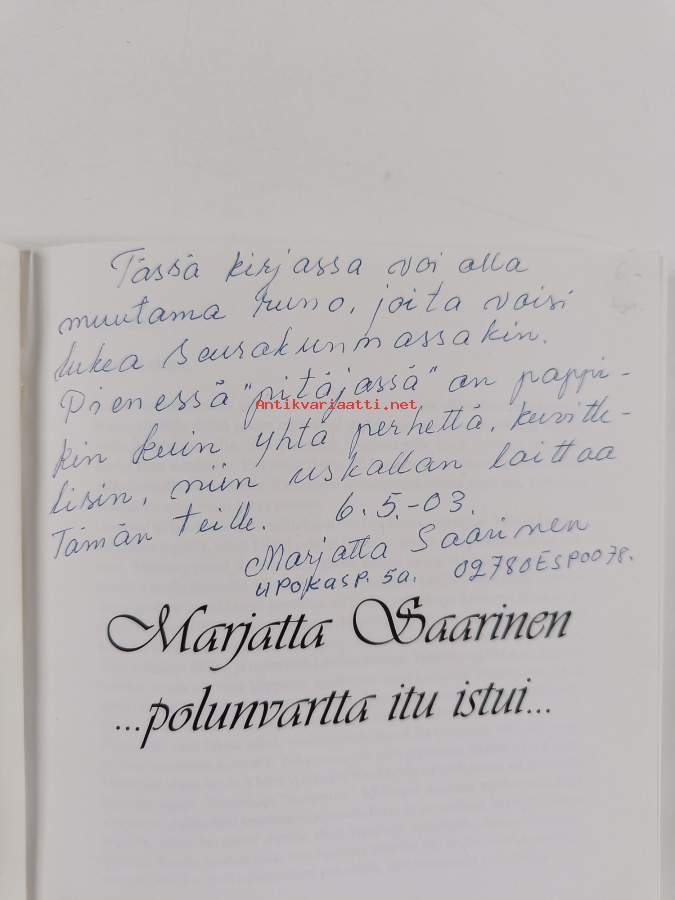 Tässä kirjassa voi olla
muutama runo, joita voisi
lukea seurakunnassakin.
Pienessä "pitäjässä" on pappi-
Antikvariaatti.net
kin kuin yhtä perhettä, kuvitte-
lisin, niin uskallan laittaa
Tämän teille. 6.5.-03.
Marjatta Saarinen
UPOKASP. 5a. 02780ESPOO78.
Marjatta Saarinen
...polunvartta itu istui...